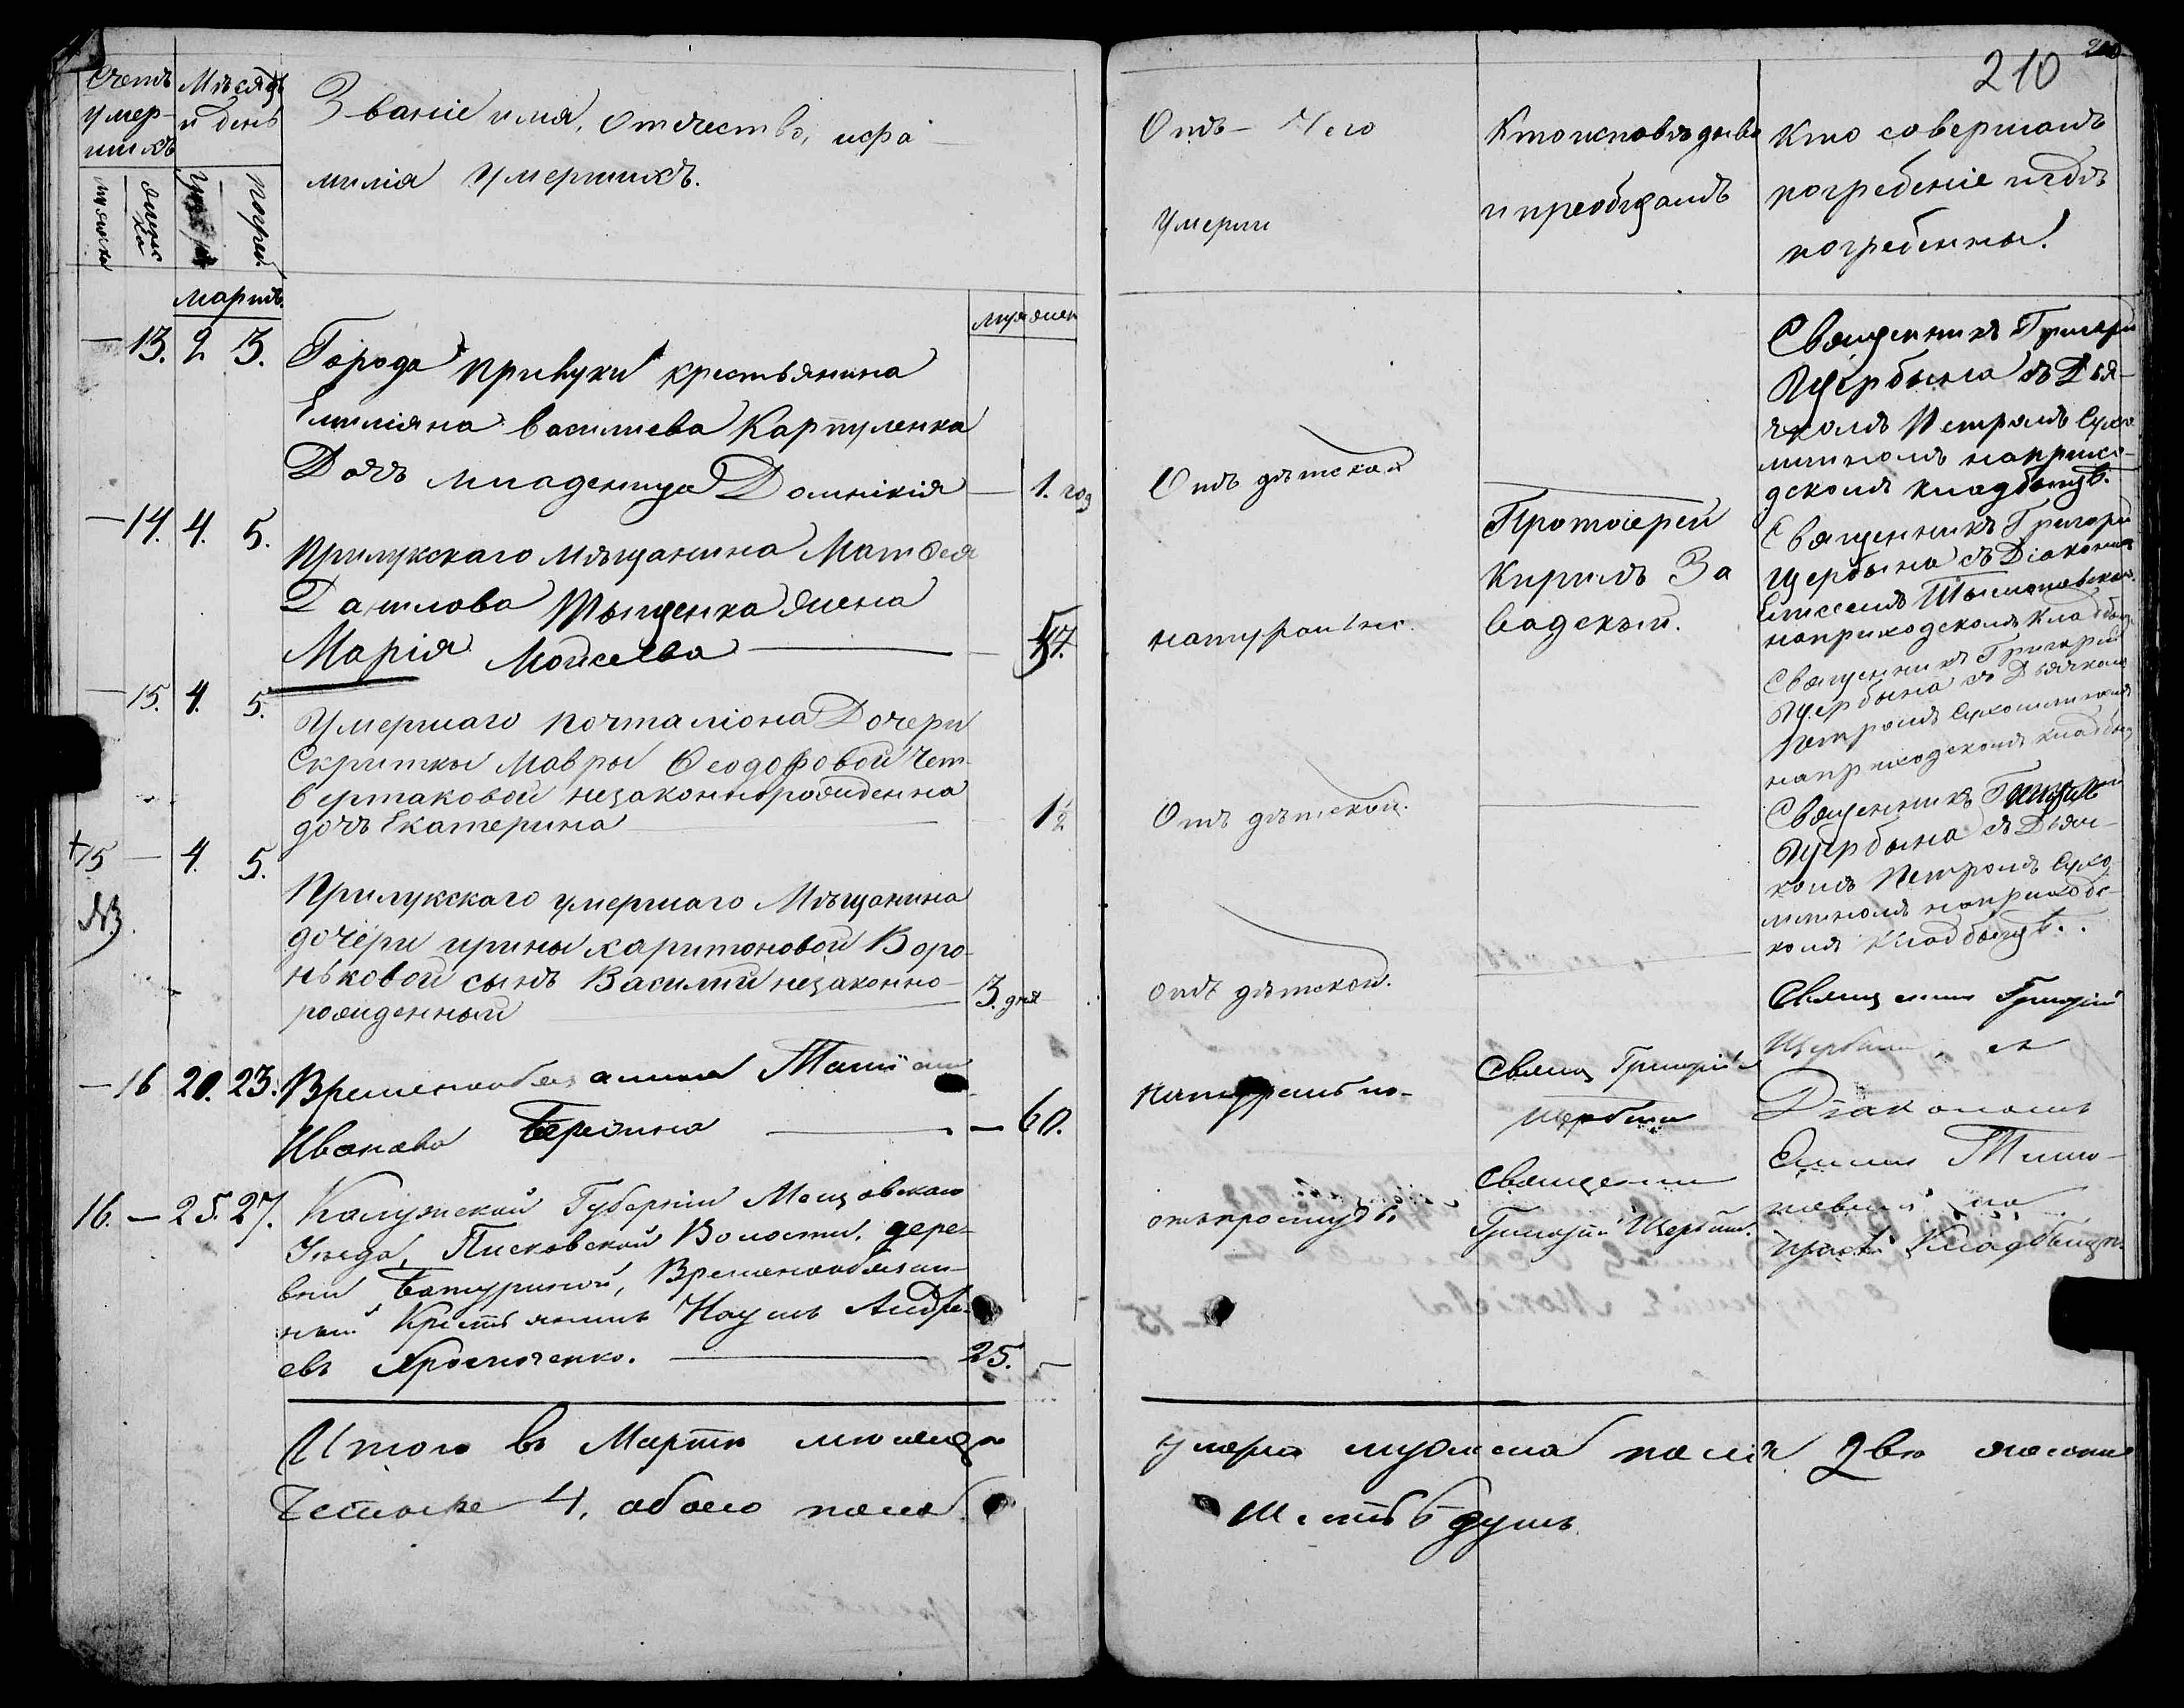 210
Счетъ
умер-
шихъ
Мѣсяцъ
и день
Званіе имя, отчество, и фа-
милія умершихъ.
мужска
женска
Погреб.
Отъ чего
умерли
Кто исповѣдыва
и пріобщалъ
Кто совершалъ
погребеніе и гдѣ
погребенны.
Мартъ.
муж жен
— 13. 2 3.
Города Прилуки крестьянина
Емиліяна Василиева Карпуленка
Дочь младеница Домникія — 1. год
Отъ дѣтской
Священникъ Григорій
Щербына съ Дья-
чкомъ Петромъ Сухо
млиномъ на прихо-
дскомъ кладбищѣ.
— 14. 4. 5.
Прилукскаго мѣщанина Матѳея
Данилова Тыщенка жена
Марія Моисеева — 57.
натурально.
Протоіерей
Кирилъ За
вадскый.
Священникъ Григорій
Щербына съ Діакономъ
на приходскомъ кладбищ
— 15. 4. 5.
Умершаго почталіона Дочери
Скритки Мавры Ѳеодоровой Чет-
вертаковой незаконнорожденна
дочь Екатерина 1½
Отъ дѣтской.
Священникъ Григорій
Щербына съ Дьячкомъ
Петромъ Сухомлиномъ
на приходскомъ кладбищ
+15 — 4. 5.
№3.
Прилукскаго умершаго Мѣщанина
дочери Ирины Харитоновой Воро-
ньковой сынъ Василій незаконно-
рожденный 3. дня
Отъ дѣтской.
Священникъ
Щербына съ Дьяч-
комъ Петромъ Сухо
млиномъ на приходс-
комъ Кладбищѣ.
— 16 20. 23.
Ивановъ — 60.
Натурально-
Свящ Григорій
Щербина
Священник Григорій
Щербина, съ
Діакономъ
16. — 25. 27.
Калужской Губерніи Мещовскаго
Уѣзда, Писковской Волости, дере-
вни Батуриной, Временнообязан-
ный Крестьянинъ Наумъ Андре-
евъ 25.
отъ простуды
Священник
Григорій Щербин.
на
Кладбищѣ.
Итого въ Мартѣ мѣсяцѣ
умерло мужеска пола 2 два женска
Четыре 4, обоего пола
шесть 6 душъ.